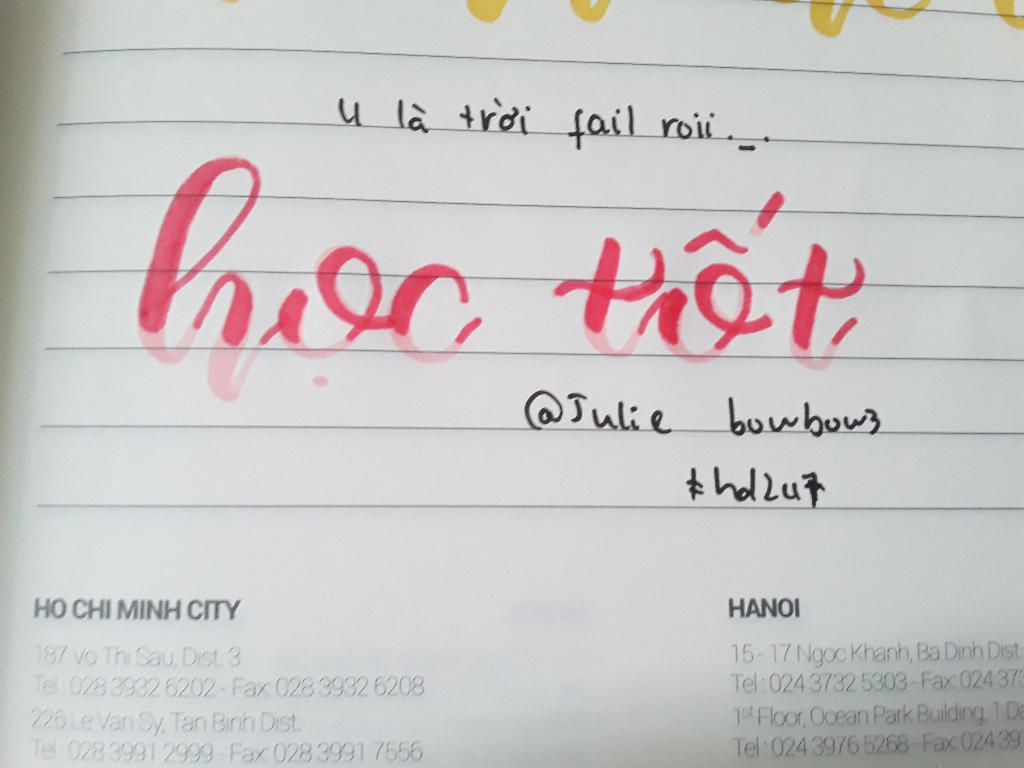 u là trời fail roii._.
học tốt
@Julie bowbow3
HO CHI MINH CITY
187 Vo Thi Sau, Dist. 3
Tel : 028 3932 6202 - Fax: 028 3932 6208
226 Le Van Sy, Tan Binh Dist.
Tel : 028 3991 2999 - Fax: 028 3991 7556
HANOI
15 - 17 Ngoc Khanh, Ba Dinh Dist.
Tel : 024 3732 5303 - Fax: 024 373
1st Floor, Ocean Park Building, 1 Da
Tel : 024 3976 5268 - Fax: 024 39